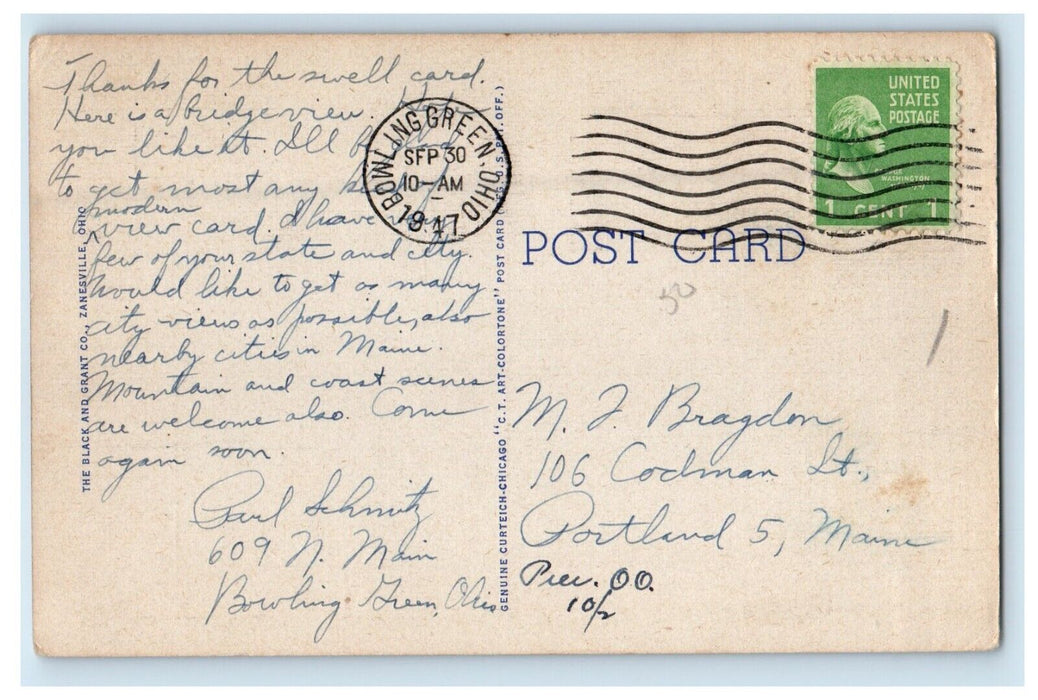 Thanks for the swell card.
Here is a bridge view. Hope
you like it. I'll be glad
to get most any kind of
modern
view card. I have very
few of your state and city.
Would like to get as many
city views as possible, also
nearby cities in Maine.
Mountain and coast scenes
are welcome also. Come
again soon.
Schmitz
609 N. Main
Bowling Green, Ohio
THE BLACK AND GRANT CO., ZANESVILLE, OHIO
GENUINE CURTEICH-CHICAGO "C.T. ART-COLORTONE" POST CARD (REG. U.S. PAT. OFF.)
BOWLING GREEN OHIO
SEP 30
10-AM
1947
UNITED
STATES
POSTAGE
WASHINGTON
1 CENT 1
POST CARD
50
M. F. Bragdon
106 Codman St.,
Portland 5, Maine
OO.
10/2